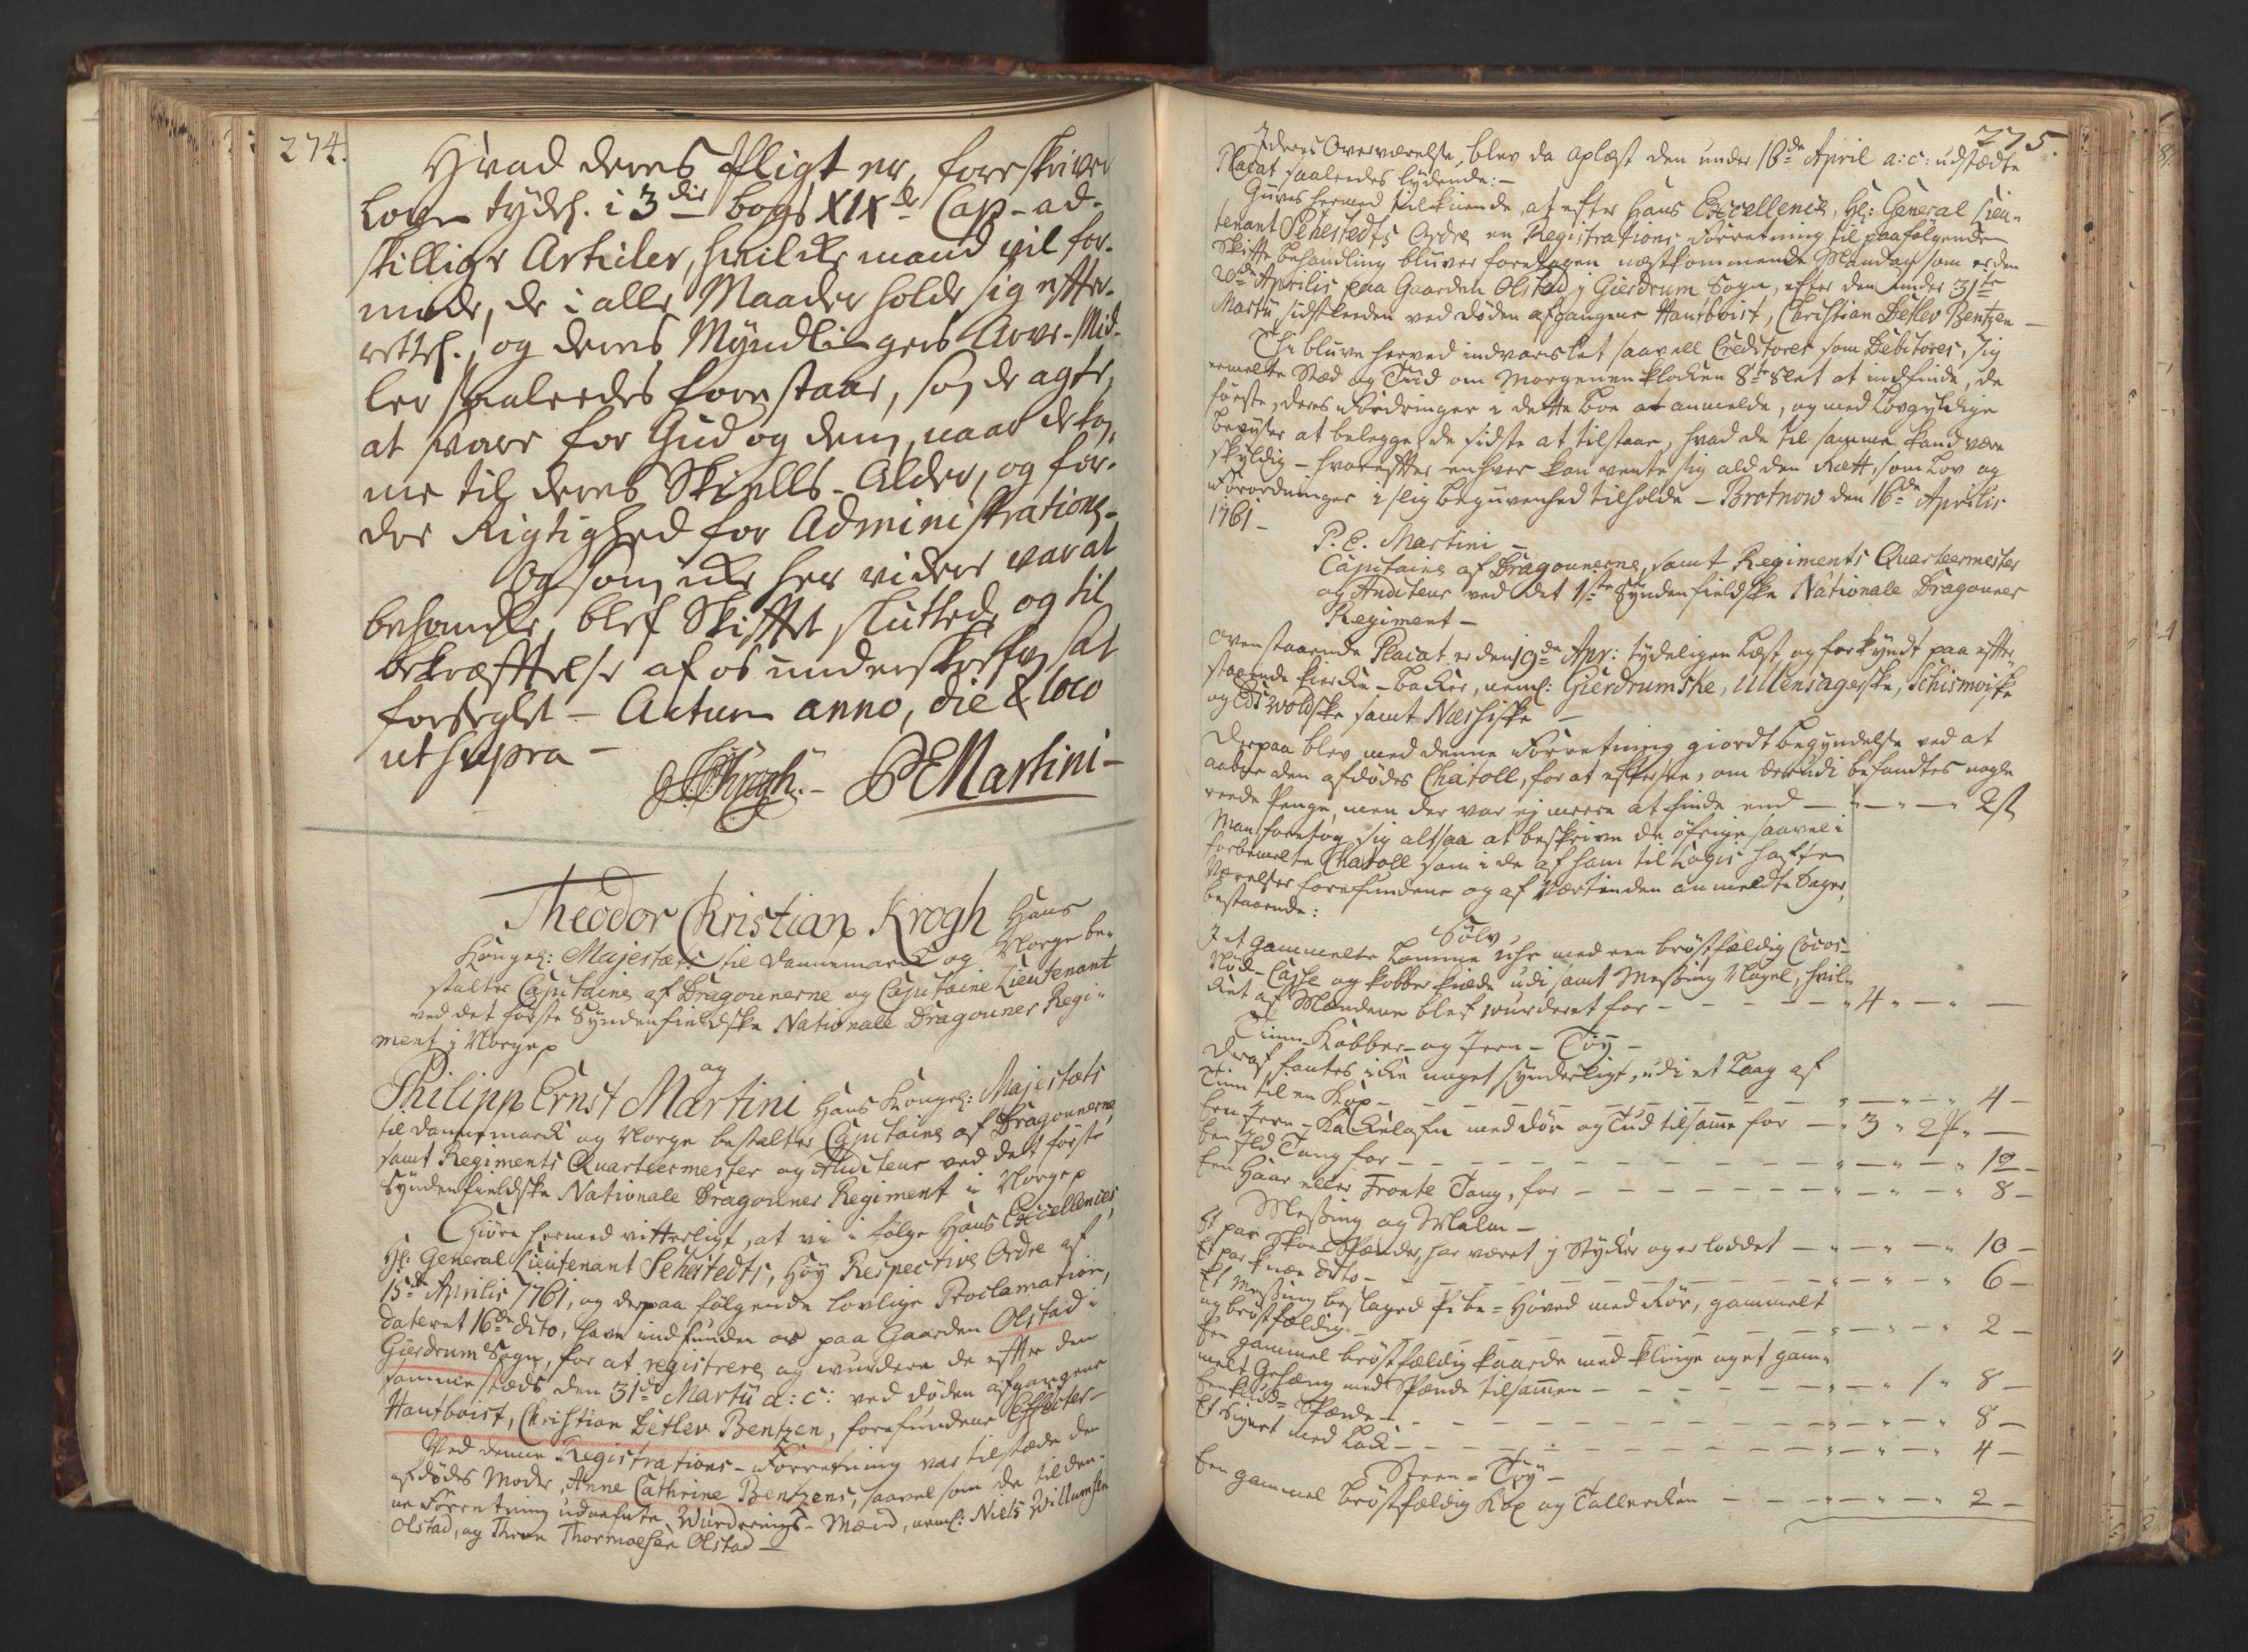 274.
Hvad deres Pligt er, foreskriver
Loven tydel. i 3die bogs XIXde Cap- ad-
skillige Articler, hvilcke mand vil for-
mode, de i alle Maader holde sig efter-
rettel., og deres Myndlingers Arve-Mid-
ler saaledes forestaar, som de agte,
at svare for Gud og dem, naar de kom-
me til deres Skiells-Alder, og for-
der Rigtighed for Administrationen-
Og som icke her videre var at
behandle, blef Skifftet sluttede og til
bekræfftelse af os underskrefven samt
forseglet – Actum anno, die & loco
ut supra –
TCKrogh. – PEMartini –
Theodor Christian Krogh Hans
Kongel: Majestæts til Dannemarck og Norge be-
stalter Capitaine af Dragounerne og Capitaine Lieutenant
ved det første Syndenfieldske Nationale Dragouner Regi-
ment i Norge
og
Philipp Ernst Martini Hans Kongel: Majestæts
til Dannemarck og Norge bestalter Capitaine af Dragounerne,
samt Regiments Quarteermester og Auditeur ved det første
Syndenfieldske Nationale Dragouner Regiment i Norge
Giøre hermed vitterligt, at vi i følge Hans Excellences,
Hr: General Lieutenant Sehestedts, Høy Respective Ordre af
15de Aprilis 1761, og derpaa følgende lovlige Proclamation,
dateret 16de dito, have indfunden os paa Gaarden Olstad i
Gierdrum Sogn, for at registrere og wurdere de efter den
samme steds den 31de Martii a: c: ved døden afgangene
Hautboist, Christian Detlev Bentzen, forefundene Effecter –
Ved denne Registrations-Forretning var tilstæde den
afdødes Moder, Anne Cathrine Bentzens, saavel som de til den-
ne Forretning udnefnte Wurderings-Mænd, neml: Niels Willumsen
Olstad, og Thron Thormoesen Olstad –
275.
I deres Overværelse, blev da oplæst den under 16de April a: c: udstædte
Placat saaledes lydende: –
Giøres hermed tilkiende, at efter Hans Excellence, Hr: General Lieu-
tenant Sehestedts Ordre en Registrations Forretning til paafølgende
Skifte behandling bliver foretagen nestkommende Mandag som er den
20de Aprilis paa Gaarden Olstad i Gierdrum Sogn, efter den under 31te
Martii sidstleeden ved døden afgangene Hautboist, Christian Detlev Bentzen –
Thi blive herved indvarslet saavell Creditorer som Debitorer, sig
ermelte Stæd og Tiid om Morgenen Klocken 8te slet at indfinde, de
første, deres Fordringer i dette Boe at anmelde, og med Lovgyldige
Beviiser at belegge, de sidste at tilstaae, hvad de til samme kand være
skyldig – hvorefter enhver kan vente sig ald den Rett, som Lov og
Forordninger i slig begivenhed tilholde – Brotnow den 16de Aprilis
1761 –
P. E. Martini –
Capitaine af Dragounerne, samt Regiments Quarteermester
og Auditeur ved det 1ste Syndenfieldske Nationale Dragouner
Regiment –
Ovenstaaende Placat er den 19de Apr: tydeligen læst og forkyndt paa efter-
staaende Kiercke-backer, neml: Gierdrumske, Ullensagerske, Schismoiske
og Eidsvoldske samt Næshiske –
Derpaa blev med denne Forretning giordt begyndelse ved at
aabne den afdødes Chatoll, for at efterse, om derudi befandtes nogle
reede Penge, men der var ej meere at finde end – " – " – " 2 ß
Man foretog sig altsaa at beskrive de øfrige saavel i
forbemelte Chatoll som i de af ham til Logis hafte
Værelser forefundene og af Vertinden anmeldte Sager,
bestaaende:
Sølv
Et gammelt Lomme Uhr med een brøstfældig Cocos-
Nød-Casse og kobber kiede udi samt Messing Nøgel, hvil-
ket af Mændene blef wurderet for – – – – " 4 " – " –
Tinn- Kobber- og Jern- Tøy –
Deraf fantes icke noget synderligt, udi et Laag af
Tinn til en Kop – – – – – – – " – " – " 4 –
Een Jern-Kackelofn med dør og Tud tilsamme for – " 3 " 2 " –
Een Ild Tang for – – – – – – – " – " – " 12 –
Een Haar eller Fronte Tang, for – – – – – " – " – " 8 –
Messing og Malm –
Et par Skoe Spænder, har været i Stycker og er loddet – " – " – " 10 –
Et par Knæe dito – – – – – – – " – " – " 6 –
Et Messing beslaged Pibe-Hoved med Rør, gammelt
og brøstfældig – – – – – – – " – " – " 2 –
Een gammel brøstfældig kaarde med klinge og et gam-
melt Gehæng med Spænde tilsammen – – – – – " – " 1 " 8 –
Een Spænde – – – – – – – " – " – " 8 –
Et Signet med Lack – – – – – – – " – " – " 4 –
Steen-Tøy –
Een gammel brøstfældig Kop og Tallercken – – " – " – " 2 –